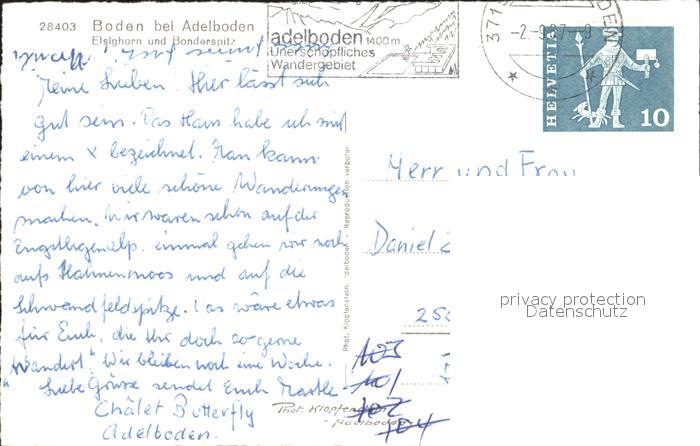 28403 Boden bei Adelboden
Elsighorn und Bonderspitz
adelboden 1400 m
Unerschöpfliches
Wandergebiet
371
DEN
-2.-9.67-9
HELVETIA
10
Meine Lieben. Hier lässt sich
gut sein. Das Haus habe ich mit
einem x bezeichnet. Man kann
von hier viele schöne Wanderungen
machen. Wir waren schon auf der
Engstligenalp. einmal gehen wir noch
aufs Hahnenmoos und auf die
Schwandfeldspitze. Das wäre etwas
für Euch, die Ihr doch so gerne
"Wandert". Wir bleiben noch eine Woche.
Liebe Grüsse sendet Euch
Châlet Butterfly
Adelboden.
Phot. Klopfenstein, Adelboden - Reproduktion verboten
Herr und Frau
Daniel
25
103
101
102
104
Phot. Klopfenstein
Adelboden
privacy protection
Datenschutz